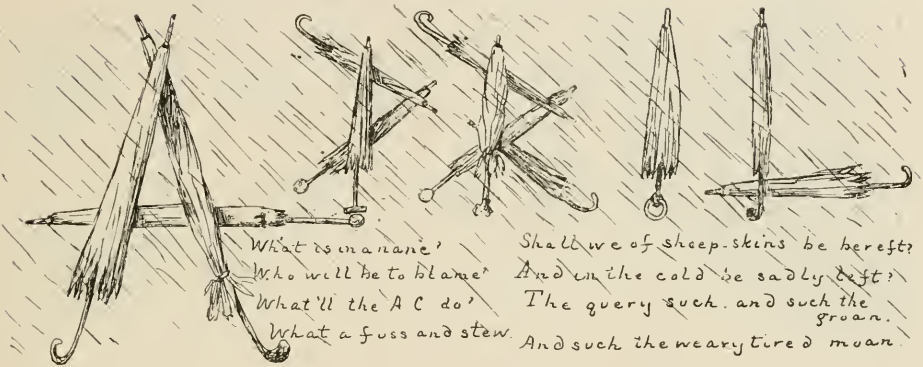 APRIL
What is in a name?
Who will be to blame?
What'll the A C do?
What a fuss and stew.
Shall we of sheep-skins be bereft?
And in the cold be sadly left?
The query such. and such the
groan.
And such the weary tired moan.